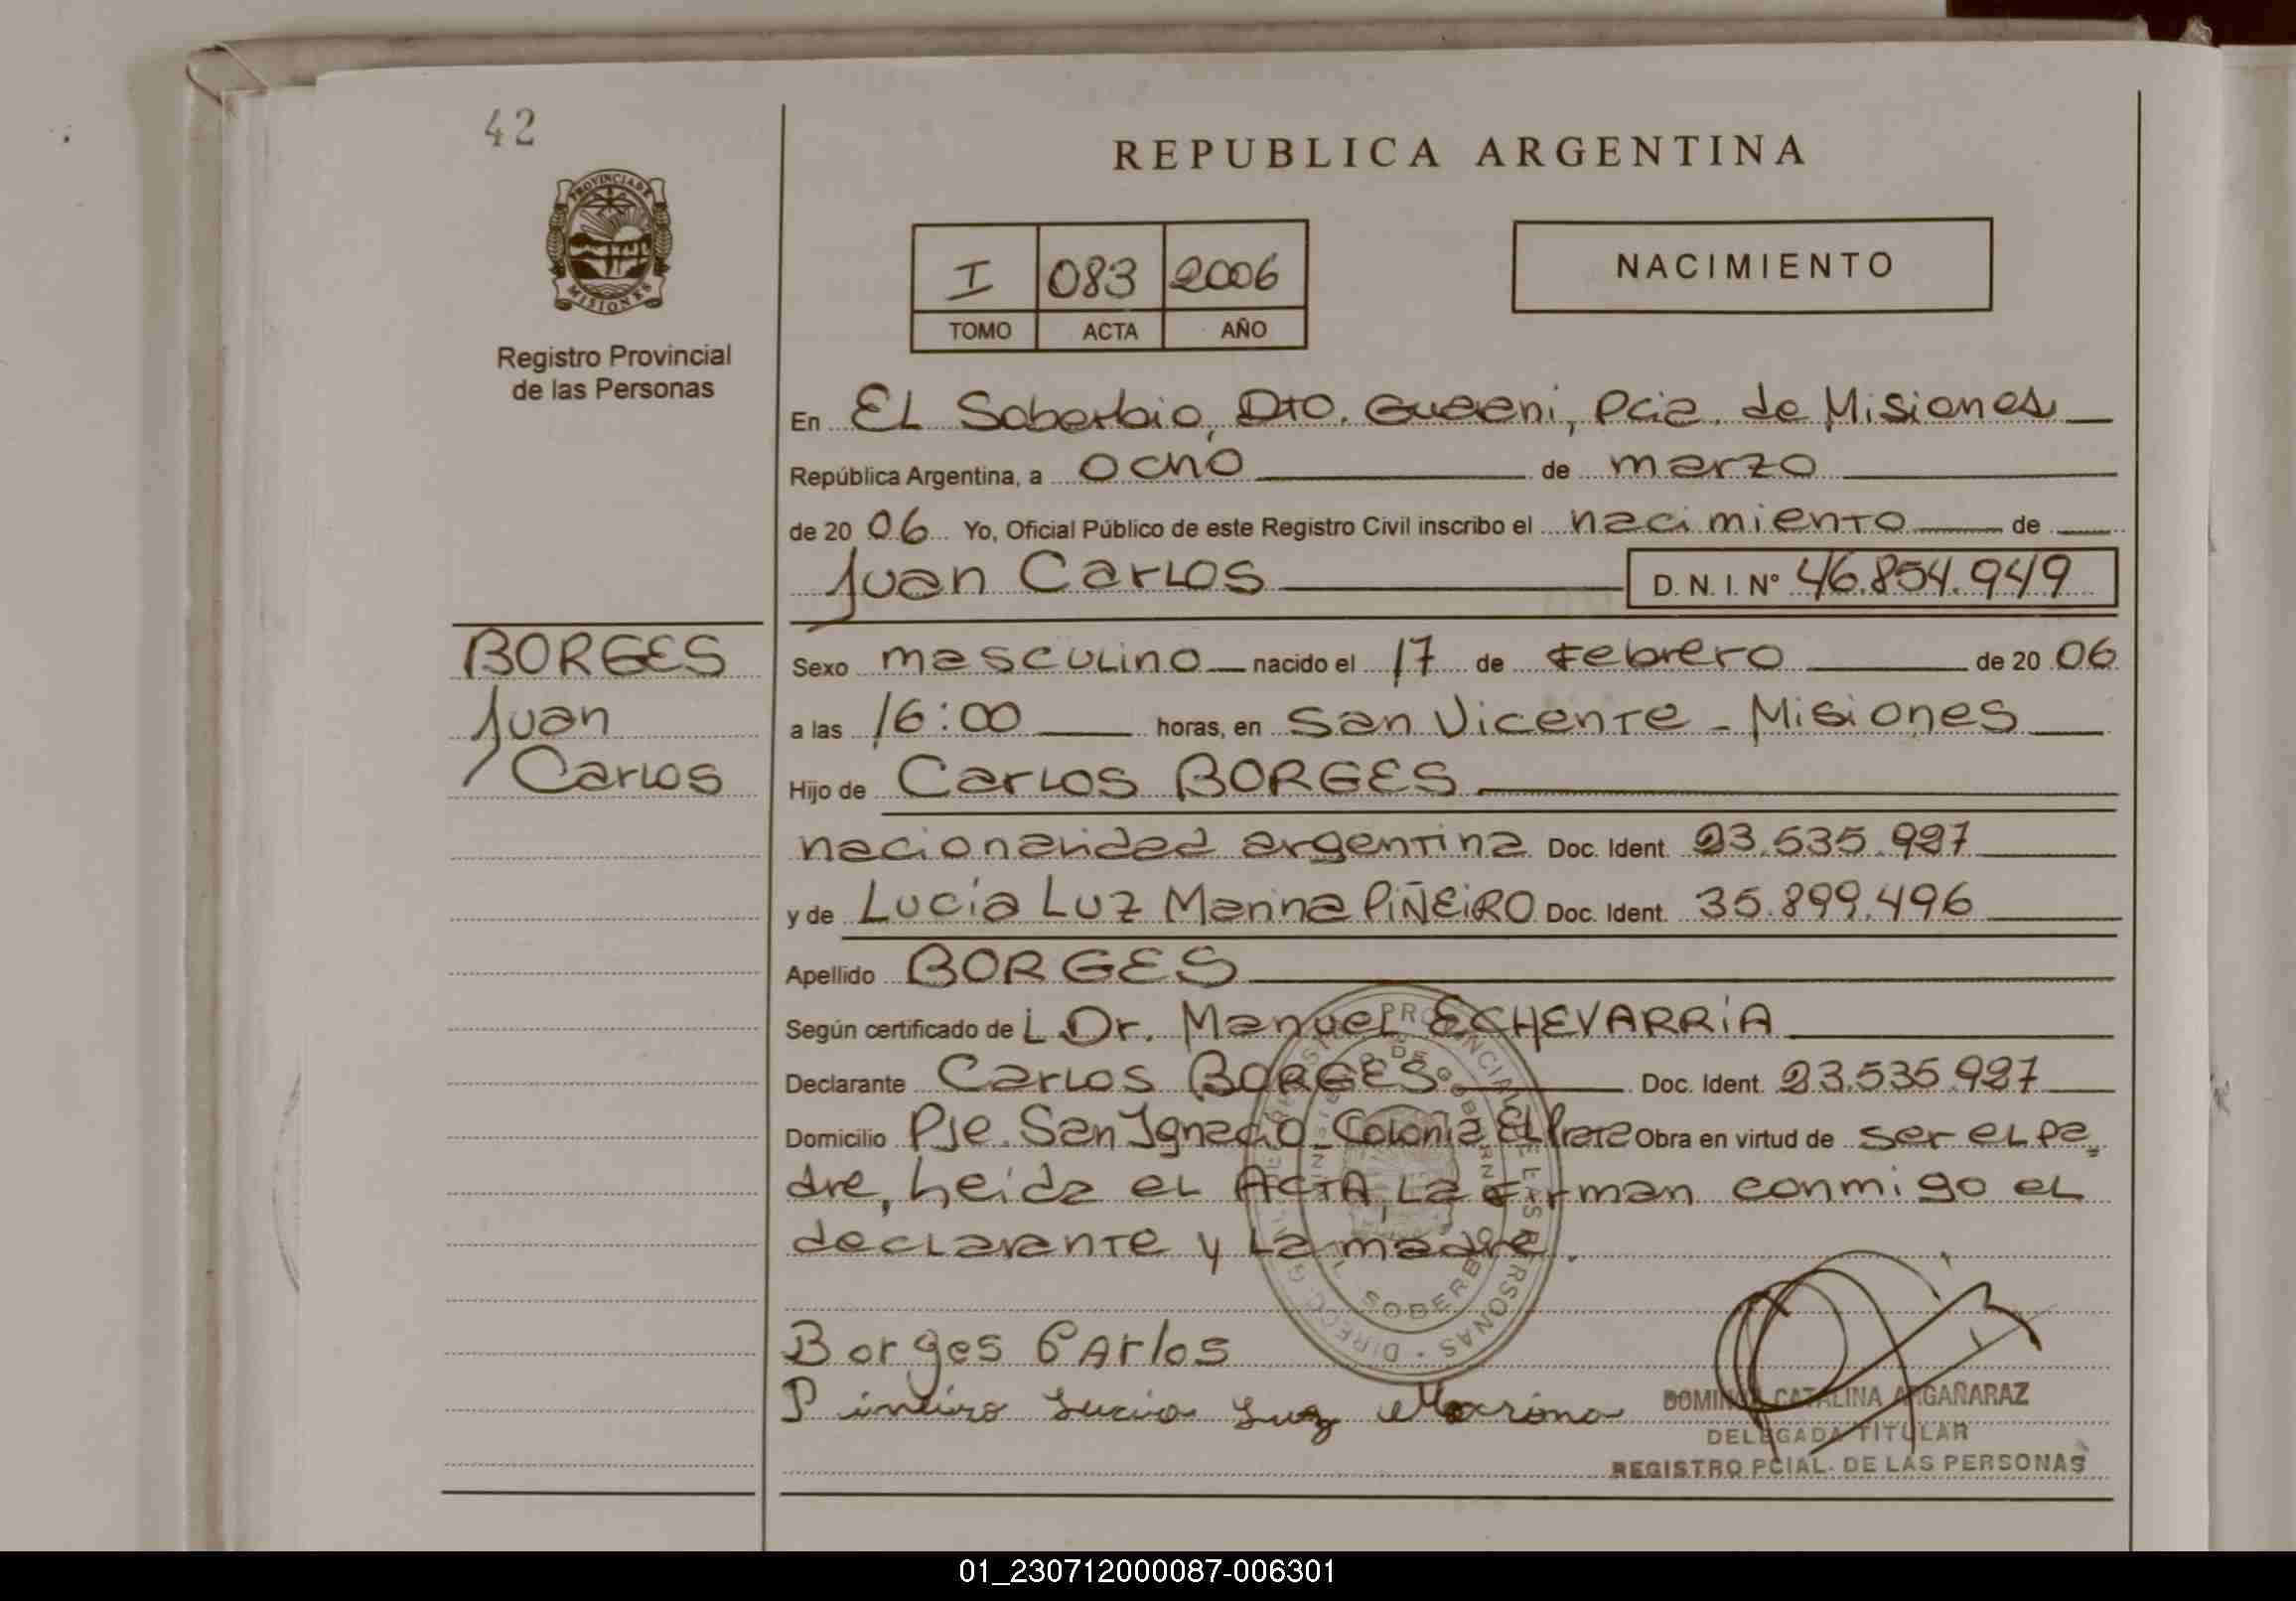 42
REPUBLICA ARGENTINA
PROVINCIA DE
MISIONES
Registro Provincial
de las Personas
I 083 2006
TOMO ACTA AÑO
NACIMIENTO
En EL Soberbio, Dto. Guarani, Pcia. de Misiones
República Argentina, a ocho de marzo
de 20 06 Yo, Oficial Público de este Registro Civil inscribo el nacimiento de
Juan Carlos D. N. I. Nº 46.854.949
BORGES
Juan
Carlos
Sexo masculino nacido el 17 de Febrero de 20 06
a las 16:00 horas, en San Vicente - Misiones
Hijo de Carlos BORGES
nacionalidad argentina Doc. Ident. 23.535.927
y de Lucía Luz Marina PIÑEIRO Doc. Ident. 35.899.496
Apellido BORGES
Según certificado de L Dr. Manuel ECHEVARRÍA
Declarante Carlos BORGES Doc. Ident. 23.535.927
Domicilio Pje. San Ignacio, Colonia El Obra en virtud de ser el pa
dre, Leida el ACTA, La firman conmigo el
declarante y La madre.
SOBERBIO
Borges CArlos
Pineiro Lucia Luz Marina
CATALINA ARGAÑARAZ
DELEGADA TITULAR
REGISTRO PCIAL. DE LAS PERSONAS
01_230712000087-006301